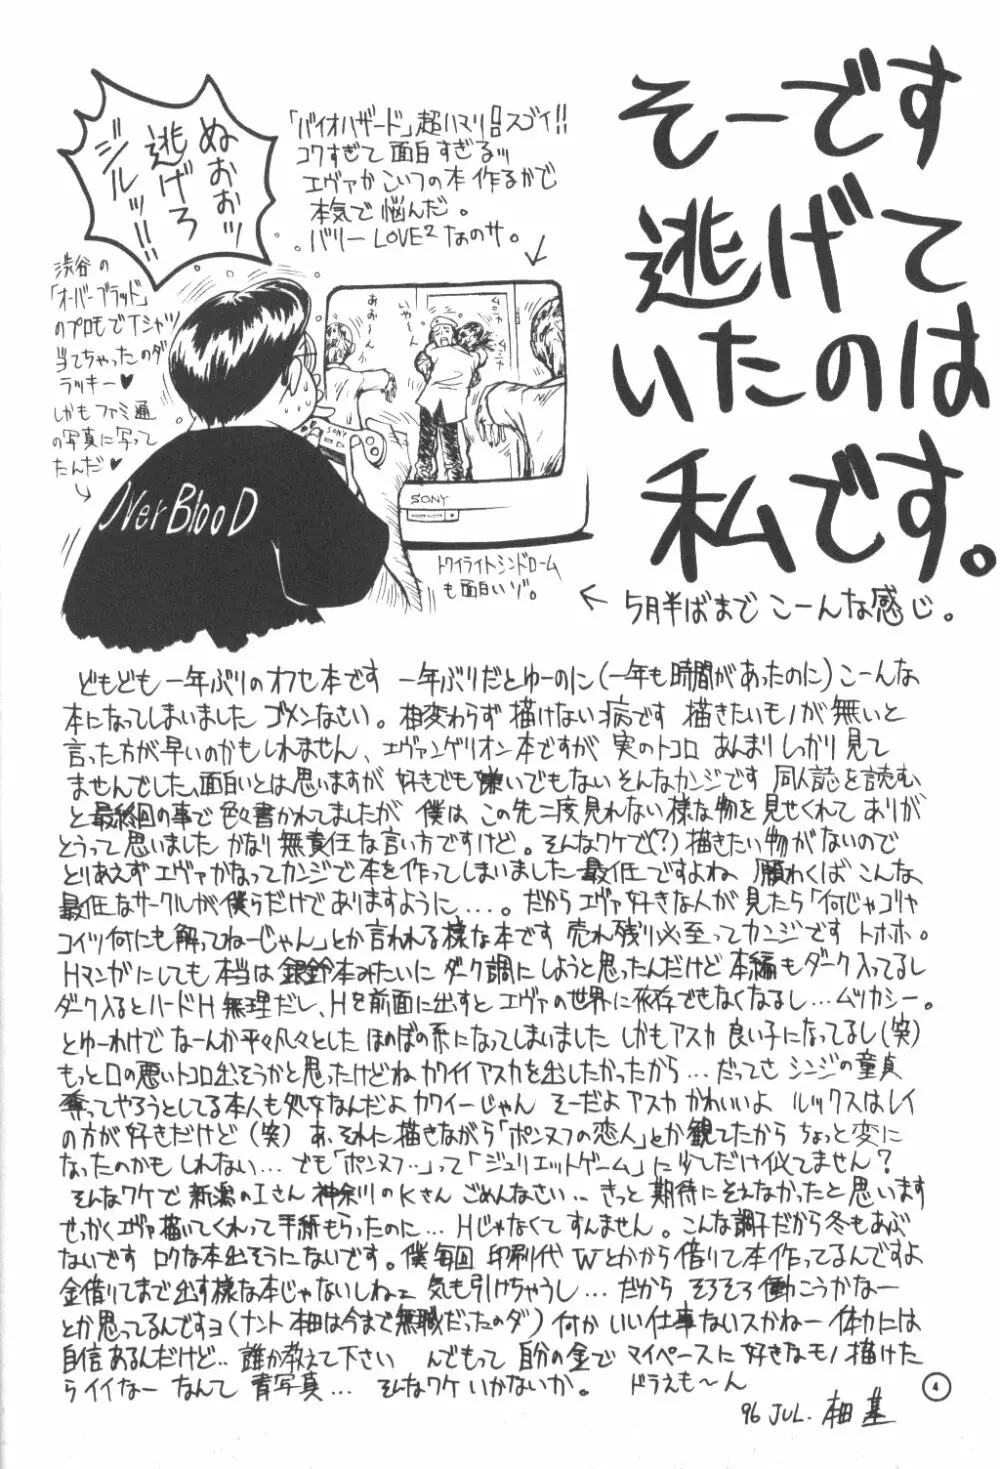 そーです
逃げて
いたのは
私です。
「バイオハザード」超ハマリ!!スゴイ!!
コワすぎて面白すぎるッ
エヴァかこいつの本作るかで
本気で悩んだ。
バリーLOVE2なのサ。
ぬおおッ
逃げろ
ジルッ!!
渋谷の
「オーバーブラッド」
のプロモでTシャツ
当てちゃったのダ
ラッキー♥
しかもファミ通
の写真に写って
たんだ♥
いやーん
おおーん
SONY
OverBlooD
SONY
トワイライトシンドローム
も面白いゾ。
← 5月半ばまでこーんな感じ。
どもども一年ぶりのオフセ本です 一年ぶりだとゆーのに(一年も時間があったのに)こーんな
本になってしまいました ゴメンなさい。相変わらず描けない病です 描きたいモノが無いと
言った方が早いのかもしれません、エヴァンゲリオン本ですが 実のトコロ あんまりしっかり見て
ませんでした。面白いとは思いますが 好きでも嫌いでもない そんなカンジです 同人誌を読む
と最終回の事で色々書かれてましたが 僕は この先二度見れない様な物を見せくれて ありが
とうって思いました かなり無責任な言い方ですけど。そんなワケで(?)描きたい物がないので
とりあえず エヴァかなってカンジで本を作ってしまいました 最低ーですよね 願わくば こんな
最低なサークルが僕らだけでありますように...。だからエヴァ好きな人が見たら「何じゃゴリャ
コイツ何にも解ってねーじゃん」とか言われる様な本です 売れ残り必至ってカンジです トホホ。
Hマンガにしても 本当は銀鈴本みたいに ダーク調にしようと思ったんだけど 本編もダーク入ってるし
ダーク入るとハードH無理だし、Hを前面に出すと エヴァの世界に依存できなくなるし...ムツカシー。
とゆーわけで なーんか平々凡々とした ほのぼの系になってしまいました しかもアスカ 良い子になってるし(笑)
もっと口の悪いトコロ出そうかと思ったけどね カワイイアスカを出したかったから... だってさ シンジの童貞
奪ってやろうとしてる本人も処女なんだよ カワイーじゃん そーだよアスカ かわいいよ ルックスはレイ
の方が好きだけど(笑) あ、それに描きながら「ポンヌフの恋人」とか観てたから ちょっと変に
なったのかも しれない... でも「ポンヌフ‥」って「ジュリエットゲーム」に少しだけ似てません?
そんなワケで 新潟のIさん 神奈川のKさん ごめんなさい‥ きっと期待にそえなかったと思います
せっかくエヴァ描いてくれって手紙もらったのに... Hじゃなくて すんません。こんな調子だから冬もあぶ
ないです ロクな本出そうにないです。僕毎回 印刷代 Wとかから借りて本作ってるんですよ
金借りてまで出す様な本じゃないしねェ 気も引けちゃうし... だから そろそろ働こうかなー
とか思ってるんですヨ(ナント 本田は今まで無職だったのダ) 何か いい仕事ないスかねー 体力には
自信あるんだけど‥ 誰か教えて下さい んでもって 自分の金で マイペースに好きなモノ描けた
らイイなー なんて 青写真... そんなワケいかないか。 ドラえも〜ん
96 JUL. 本田 基
4